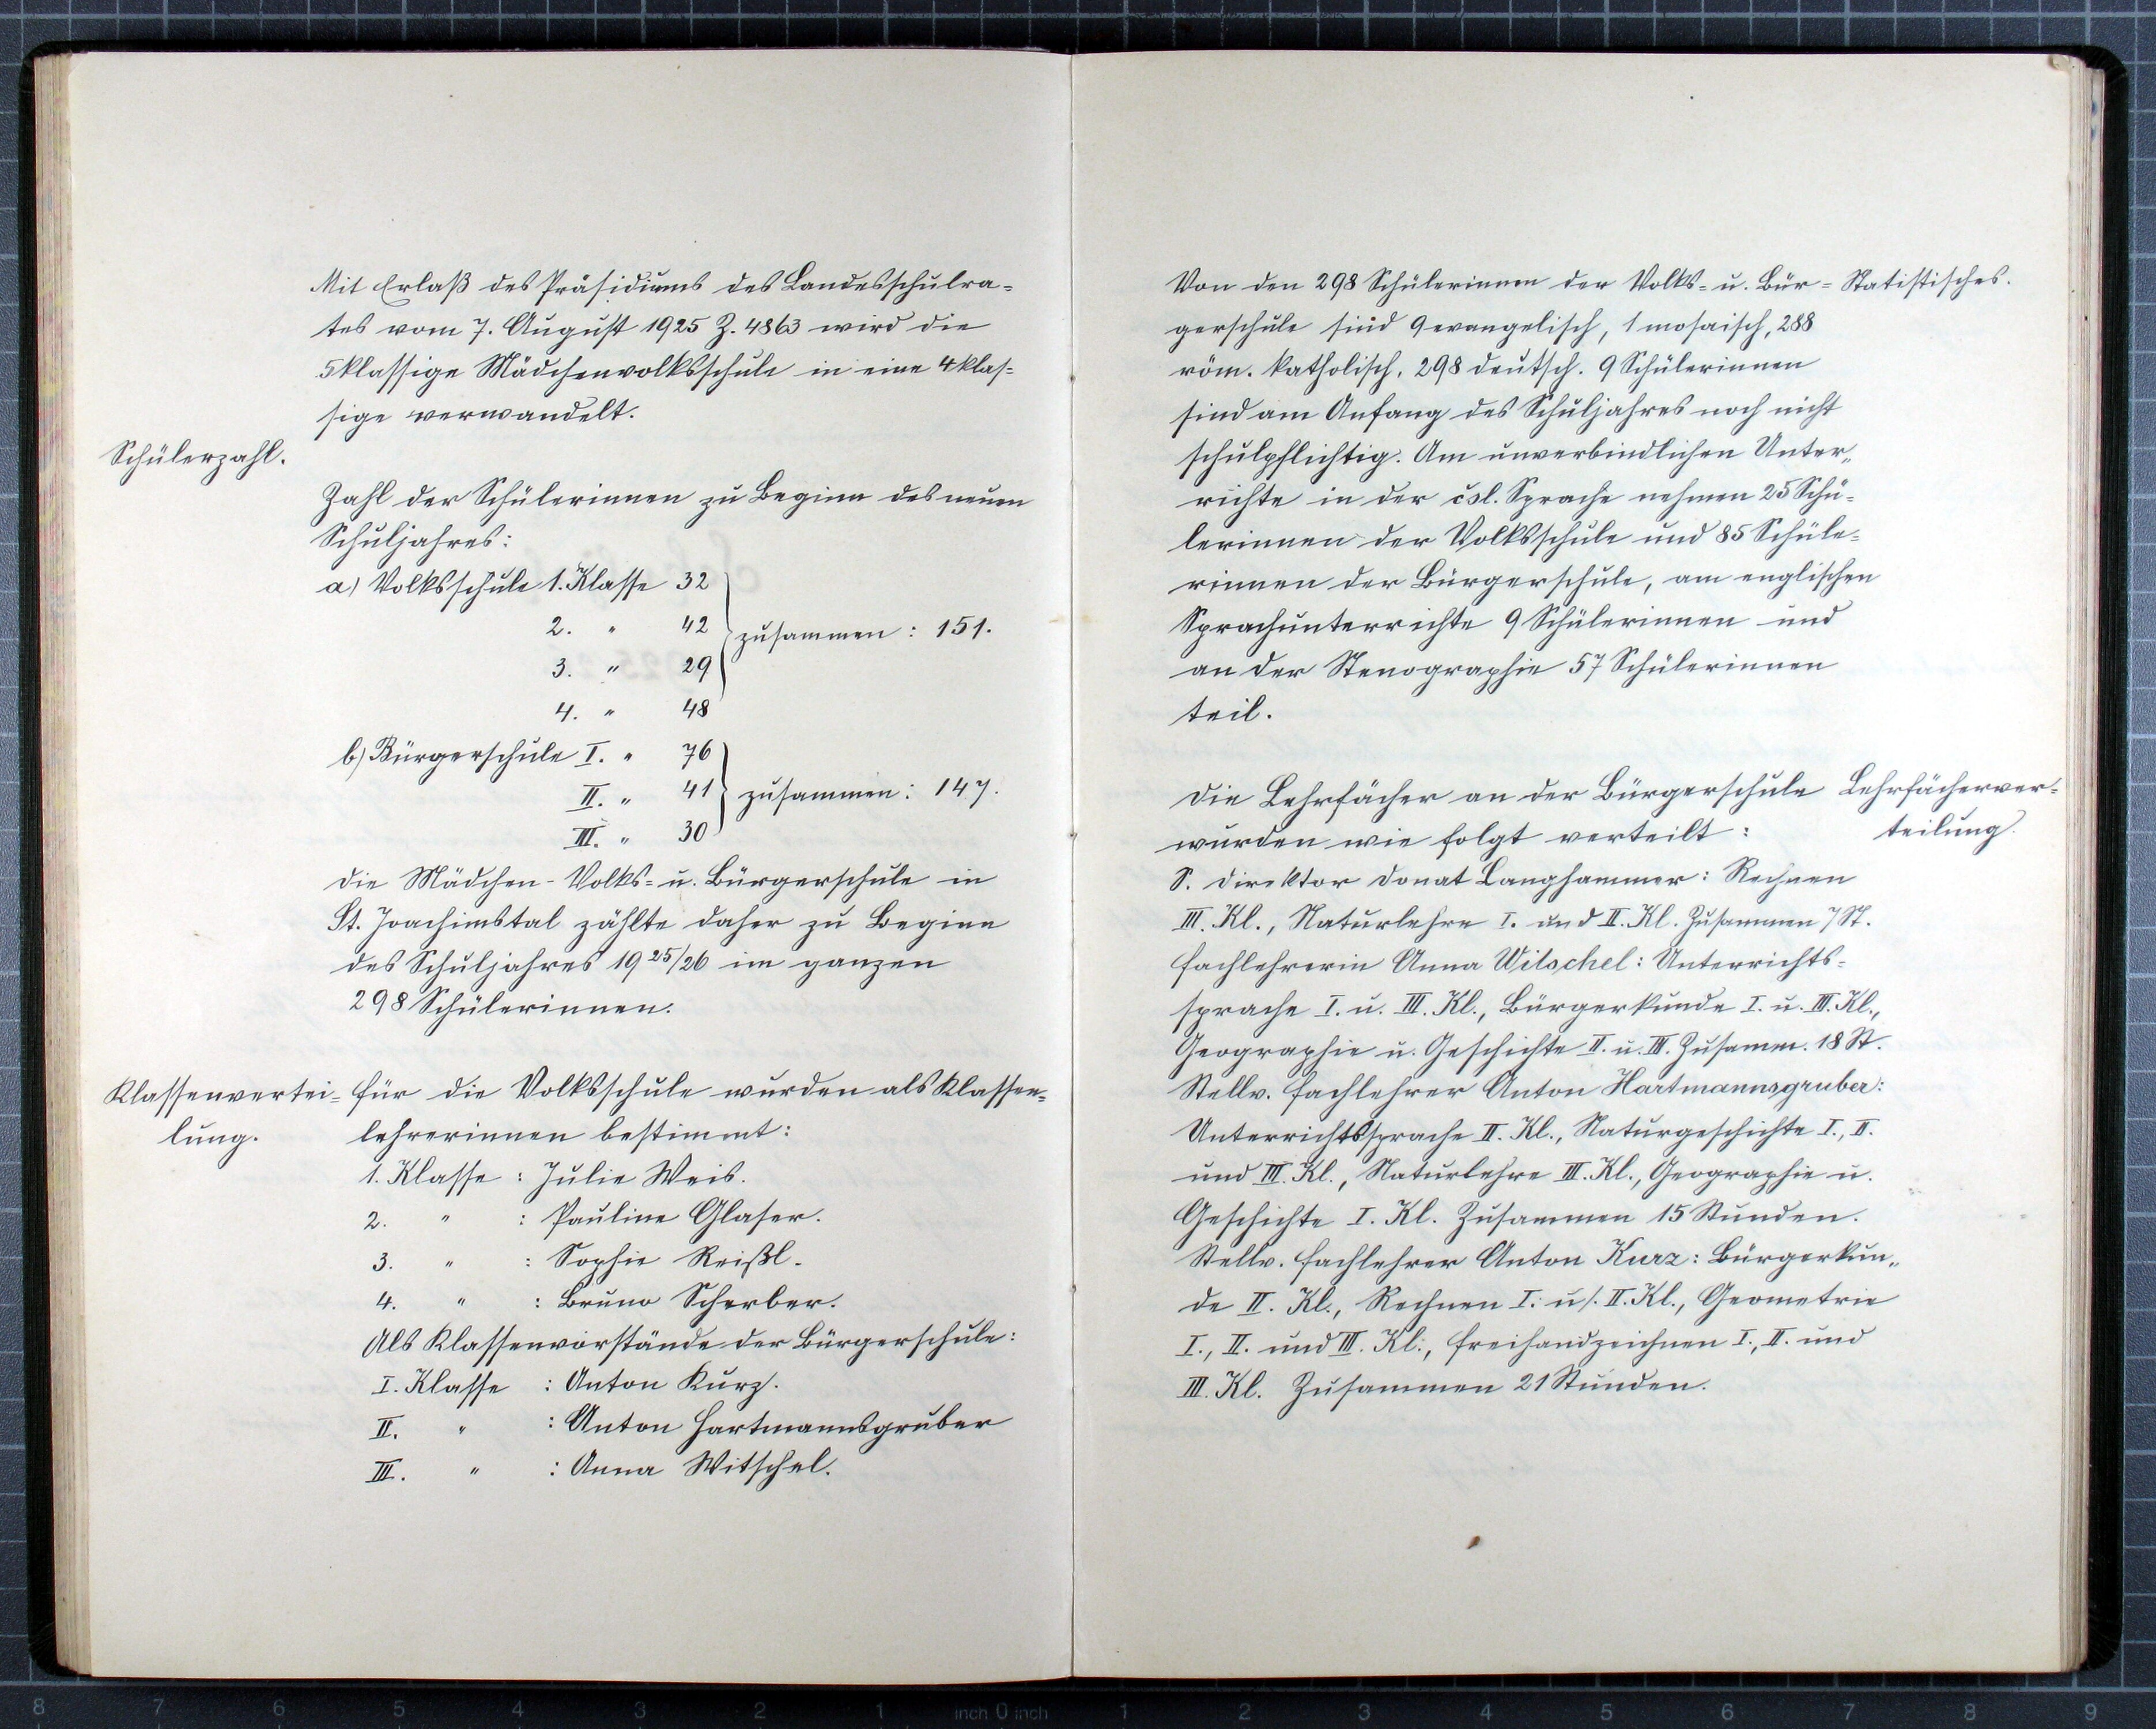 Mit Erlaß des Präsidiums des Landesschulra-
tes vom 7. August 1925 Z. 4863 wird die
5klassige Mädchenvolksschule in eine 4klas-
sige verwandelt.
Schülerzahl.
Zahl der Schülerinnen zu Beginn des neuen
Schuljahres:
a) Volksschule 1. Klasse 32
2. " 42 zusammen: 151.
3. " 29
4. " 48
b) Bürgerschule I. " 76
II. " 41 zusammen: 147.
III. " 30
Die Mädchen- Volks- u. Bürgerschule in
St. Joachimstal zählte daher zu Beginn
des Schuljahres 1925/26 im ganzen
298 Schülerinnen.
Klassenvertei- Für die Volksschule wurden als Klassen-
lung. lehrerinnen bestimmt:
1. Klasse : Julie Weis.
2. " : Pauline Glaser.
3. " : Sophie Reißl.
4. " : Bruno Scherber.
Als Klassenvorstände der Bürgerschule:
I. Klasse : Anton Kurz.
II. " : Anton Hartmannsgruber
III. " : Anna Witschel.
Von den 298 Schülerinnen der Volks- u. Bür- Statistisches.
gerschule sind 9 evangelisch, 1 mosaisch, 288
röm. katholisch, 298 deutsch. 9 Schülerinnen
sind am Anfang des Schuljahres noch nicht
schulpflichtig. Am unverbindlichen Unter-
richte in der čsl. Sprache nehmen 25 Schü-
lerinnen der Volksschule und 85 Schüle-
rinnen der Bürgerschule, am englischen
Sprachunterrichte 9 Schülerinnen und
an der Stenographie 57 Schülerinnen
teil.
Die Lehrfächer an der Bürgerschule Lehrfächerver-
wurden wie folgt verteilt: teilung.
S. Direktor Donat Langhammer: Rechnen
III. Kl., Naturlehre I. und II. Kl. Zusammen 7 St.
Fachlehrerin Anna Witschel: Unterrichts-
sprache I. u. III. Kl., Bürgerkunde I. u. III. Kl.,
Geographie u. Geschichte II. u. III. Zusamm. 18 St.
Stellv. Fachlehrer Anton Hartmannsgruber:
Unterrichtssprache II. Kl., Naturgeschichte I., II.
und III. Kl., Naturlehre III. Kl., Geographie u.
Geschichte I. Kl. Zusammen 15 Stunden.
Stellv. Fachlehrer Anton Kurz: Bürgerkun-
de II. Kl., Rechnen I. u. II. Kl., Geometrie
I., II. und III. Kl., Freihandzeichnen I., II. und
III. Kl. Zusammen 21 Stunden.
8 7 6 5 4 3 2 1 inch 0 inch 1 2 3 4 5 6 7 8 9